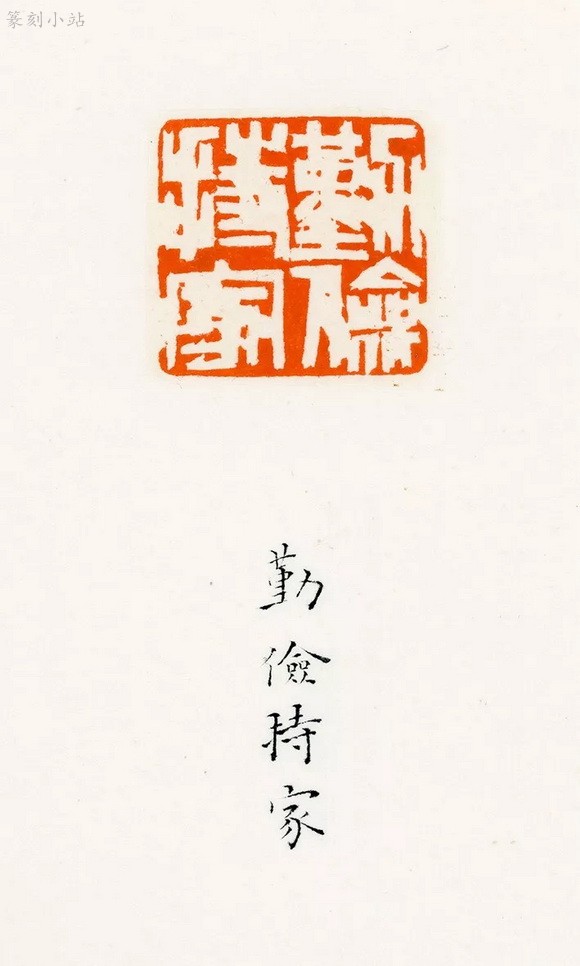 篆刻小站
勤儉
持家
勤儉持家